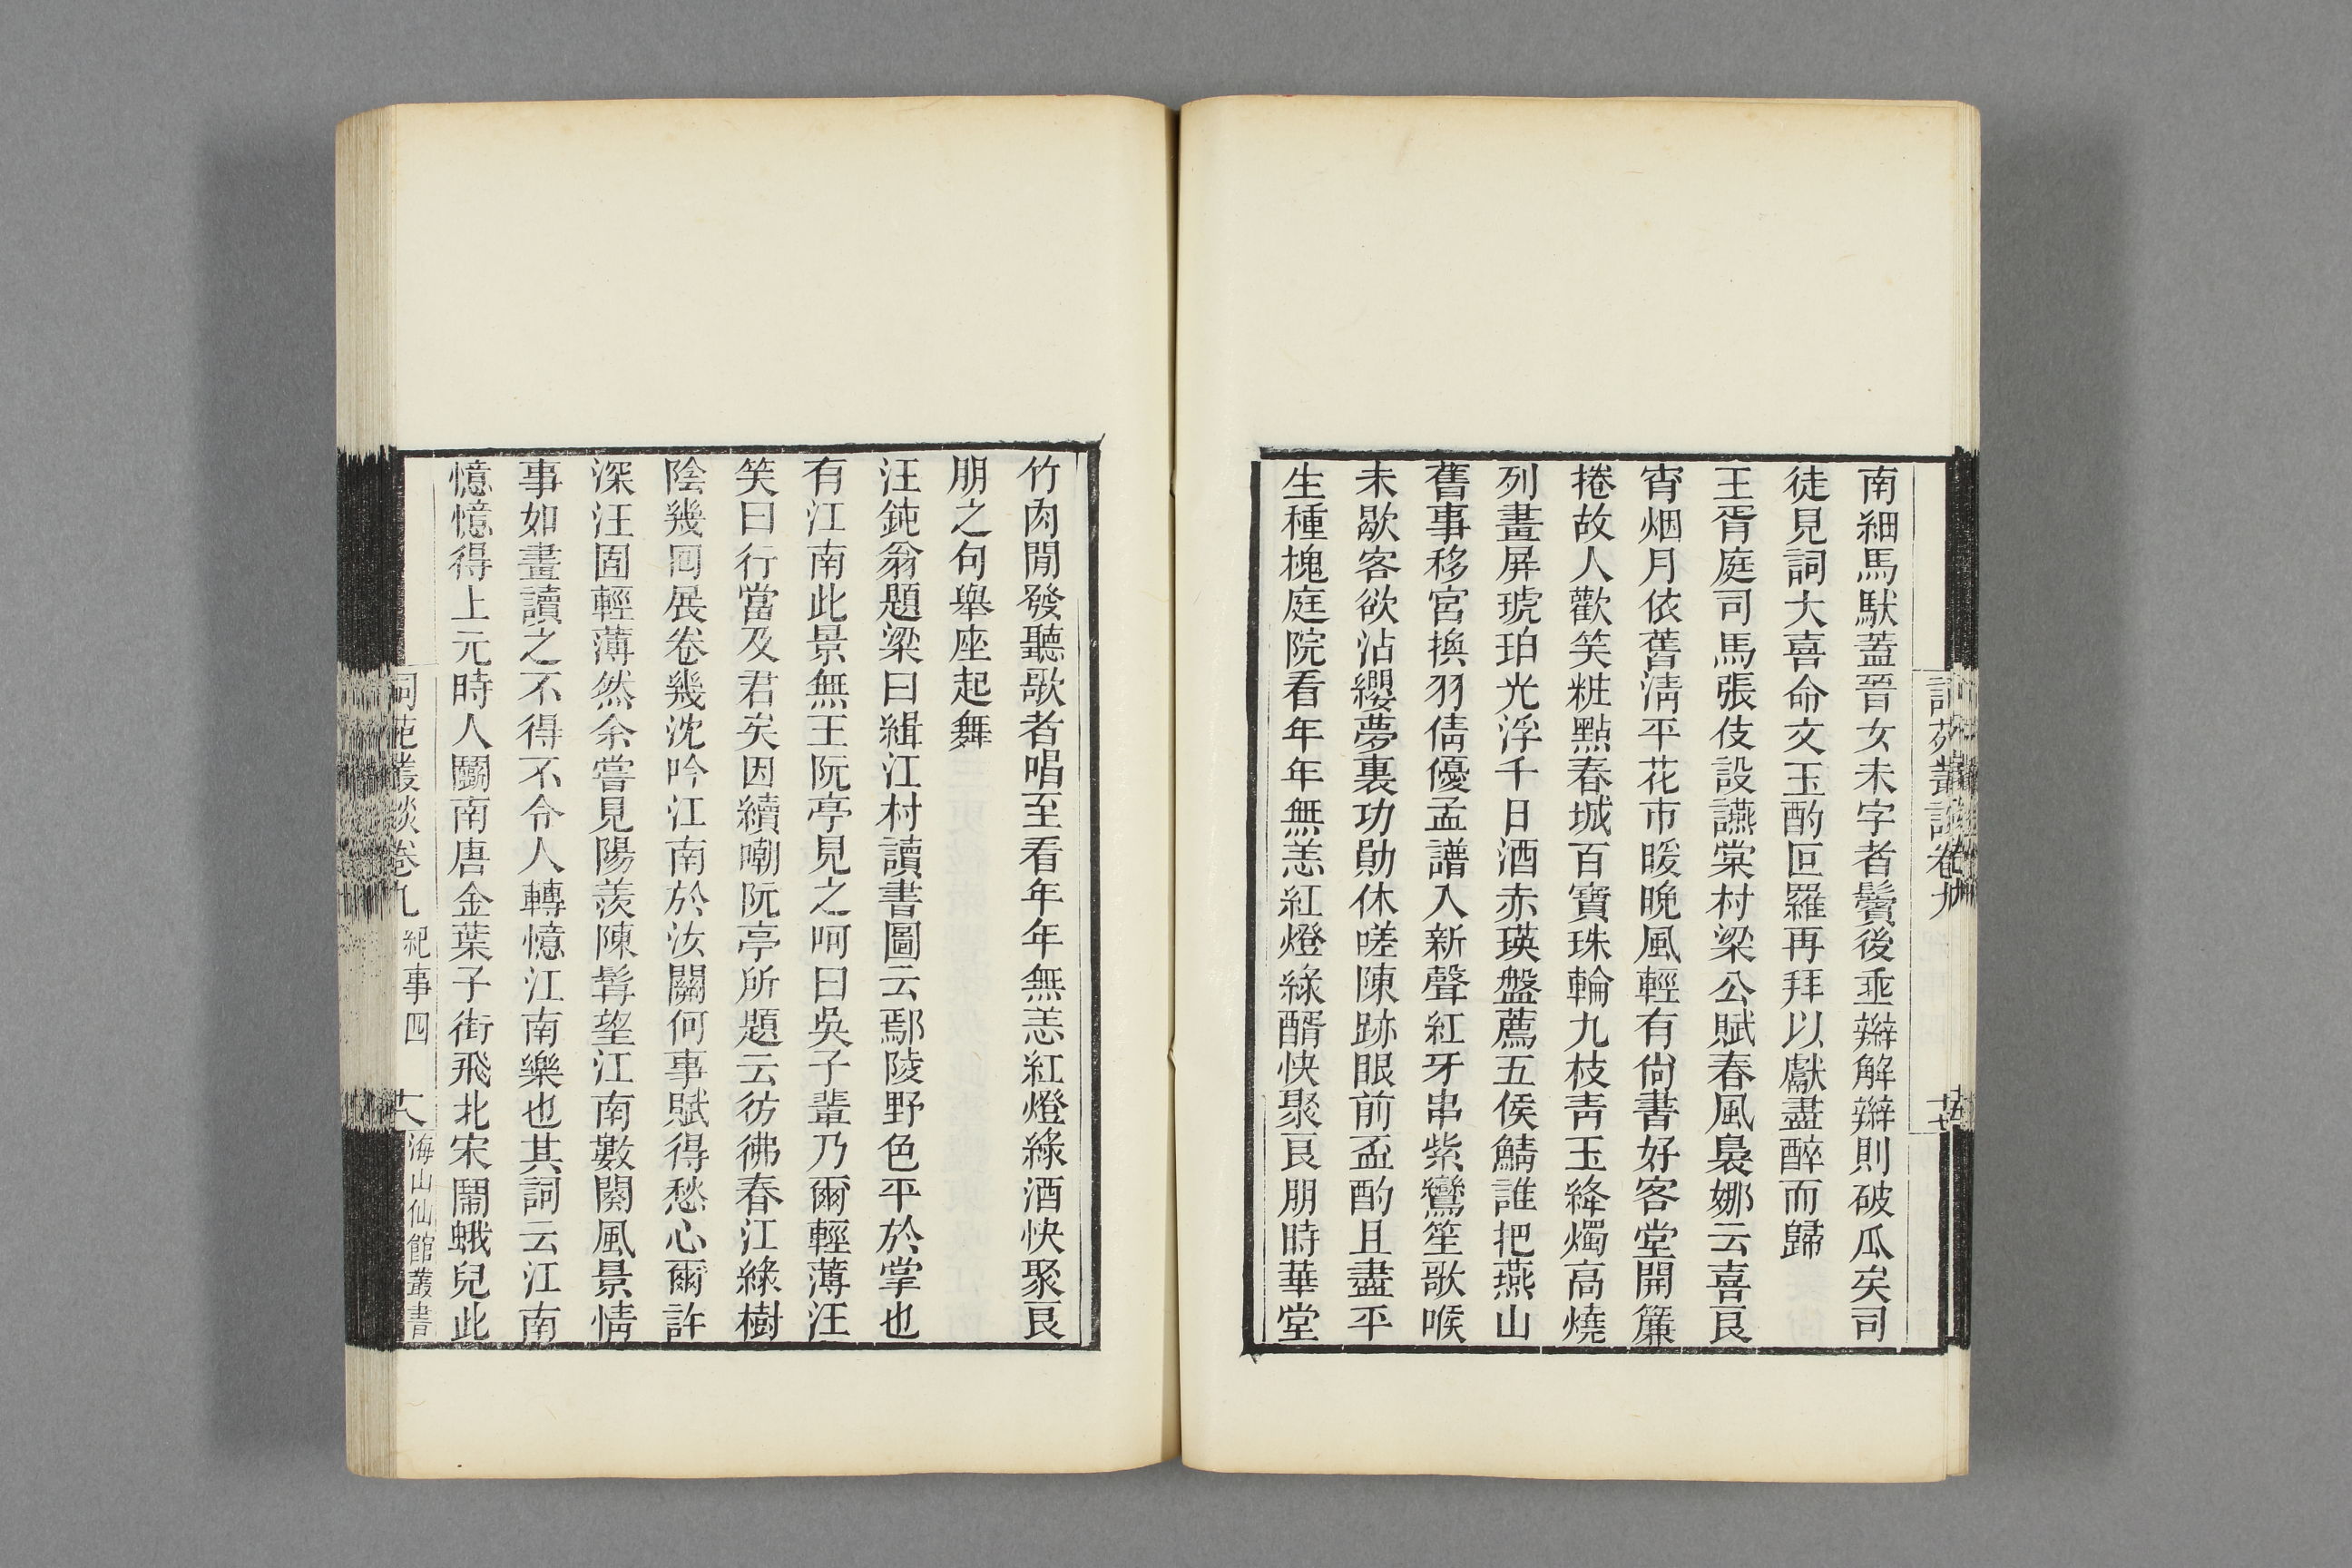 南細馬馱蓋晉女未字者鬢後垂辮解辮則破瓜矣司
徒見詞大喜命文玉酌叵羅再拜以獻盡醉而歸
王胥庭司馬張伎設讌棠村梁公賦春風裊娜云喜良
宵烟月依舊淸平花市暖晚風輕有尙書好客堂開簾
捲故人歡笑粧點春城百寶珠輪九枝靑玉絳燭高燒
列畫屏琥珀光浮千日酒赤瑛盤薦五侯鯖誰把燕山
舊事移宮換羽倩優孟譜入新聲紅牙串紫鸞笙歌喉
未歇客欲沾纓夢裏功勛休嗟陳跡眼前盃酌且盡平
生種槐庭院看年年無恙紅燈綠醑快聚良朋時華堂
竹肉閒發聽歌者唱至看年年無恙紅燈綠酒快聚良
朋之句舉座起舞
汪鈍翁題梁曰緝江村讀書圖云鄢陵野色平於掌也
有江南此景無王阮亭見之呵曰吳子輩乃爾輕薄汪
笑曰行當及君矣因續嘲阮亭所題云彷彿春江綠樹
陰幾囘展卷幾沈吟江南於汝關何事賦得愁心爾許
深汪固輕薄然余嘗見陽羨陳髯望江南數闋風景情
事如畫讀之不得不令人轉憶江南樂也其詞云江南
憶憶得上元時人鬭南唐金葉子街飛北宋鬧蛾兒此
詞苑叢談卷九 紀事四 十八 海山仙館叢書